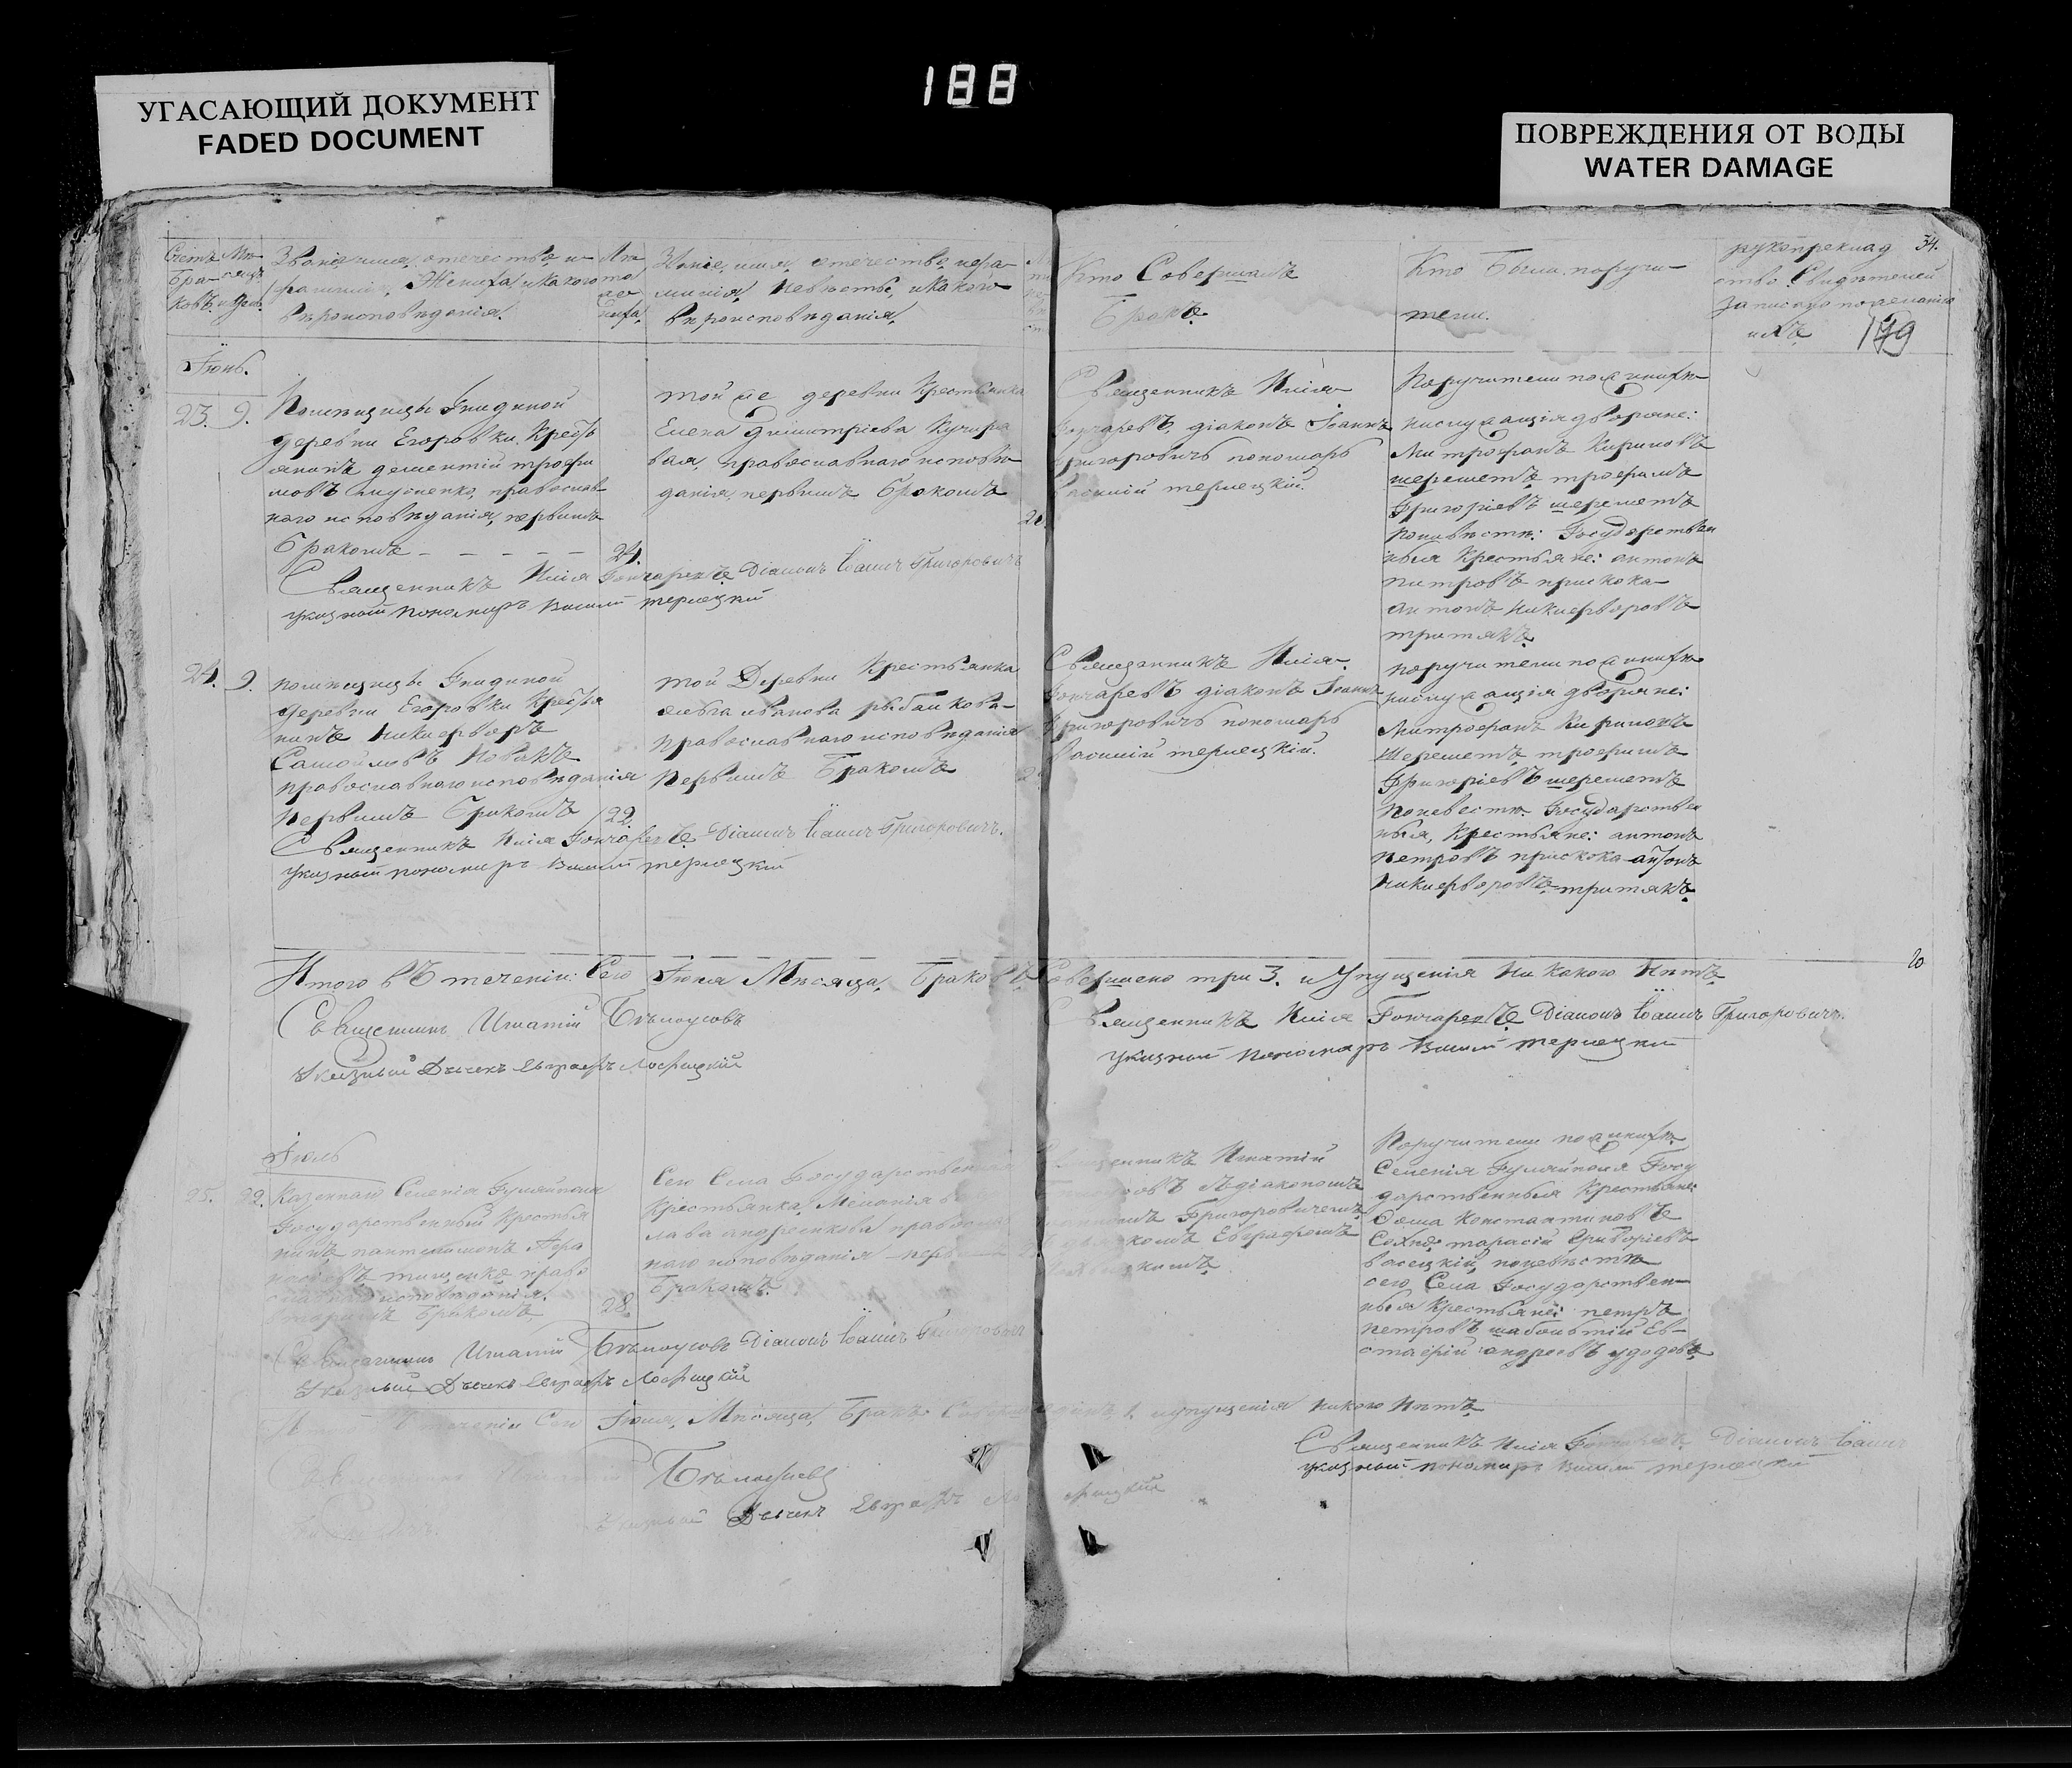 УГАСАЮЩИЙ ДОКУМЕНТ
FADED DOCUMENT
188
ПОВРЕЖДЕНИЯ ОТ ВОДЫ
WATER DAMAGE
Счетъ
Бра-
ковъ.
Мѣ-
сяцъ
и день.
Званіе, имя, отечество, и
фамилія, Жениха, и какого
вѣроисповѣданія.
Лѣ
та
же
ниха,
Званіе, имя, отечество, фа
милія, невѣсты, и какого
вѣроисповѣданія,
Кто Совершалъ
Бракъ.
Кто Были поручи-
тели.
рукоприклад
ство Свидѣтелей
записи по желанію
ихъ
34.
179
Іюнь.
23. 9.
Помѣщицы Гнидиной
деревни Егоровки, Кресть
янинъ дементій трофи
мовъ православ
наго исповѣданія, первымъ
бракомъ - - - - -
24.
той же деревни Крестьянка
Елена димитріева Кучеря
вая, православнаго исповѣ
данія, первымъ бракомъ
20
Священникъ Илія
Гончаревъ, діаконъ Іоаннъ
Григоровичъ пономарь
Василій терлецкій.
Поручители по женихѣ
неслужащія дворяне:
Митрофанъ Кириловъ
шереметъ трофимъ
Григоріевъ шереметъ
по невѣстѣ: Государствен
ныя Крестьяне: антонъ
петровъ прискока
антонъ Никифоровъ
тритякъ.
Священникъ Илія Гончаревъ Діаконъ Іоаннъ Григоровичъ
указный пономарь Василій терлецкій
24. 9.
помѣщицы Гнидиной
деревни Егоровки Крестья
нинъ Никифоръ
Самойловъ Новакъ
православнаго исповѣданія
первымъ бракомъ
22.
той Деревни Крестьянка
ольга иванова рыбалкова
православнаго исповѣданія
первымъ бракомъ
Священникъ Илія
Гончаревъ діаконъ Іоаннъ
Григоровичъ пономарь
Василій терлецкій.
поручители по женихѣ
неслужащія дворяне:
Митрофанъ Кириловъ
Шереметъ, трофимъ
Григоріевъ шереметъ
по невестѣ Государствен
ныя, Крестьяне: антонъ
петровъ прискока антонъ
Никифоровъ тритякъ.
Священникъ Илія Гончаревъ Діаконъ Іоаннъ Григоровичъ.
указный пономарь Василій терлецкій
Итого въ теченіи: Сего Іюня Мѣсяца, Браковъ Совершено три 3. и Упущенія Никакого Нѣтъ
20
Священникъ Игнатій Бѣлоусовъ
Указный Дьячекъ Евграфъ
Священникъ Илія Гончаревъ Діаконъ Іоаннъ Григоровичъ.
указный пономарь Василій терлецкій
Іюль
25. 22.
Казеннаго Селенія Гуляйполя
Государственный Крестья
нинъ пантелимонъ Афа
насіевъ тищенко право
славнаго исповѣданія,
вторымъ бракомъ
28.
Сего Села Государственная
Крестьянка, Меланія
андреикова православ
наго исповѣданія первымъ
бракомъ
Священникъ Игнатій
Бѣлоусовъ съ діакономъ
Іоанномъ Григоровичемъ
дьячкомъ Евграфомъ
Поручители по женихѣ
Селенія Гуляйполя Госу
дарственныя Крестьяне
Фома Константиновъ
тарасій Григоріевъ
васецкій, по невѣстѣ
сего Села Государствен-
ныя Крестьяне: петръ
петровъ Ев-
стафій андреевъ удодовъ
Священникъ Игнатій Бѣлоусовъ Діаконъ Іоаннъ Григоровичъ
Указный Дьячекъ Евграфъ
Итого въ теченіи Сего Іюля, Мѣсяца, Бракъ одинъ 1. и упущенія никого Нѣтъ
Священникъ Игнатій Бѣлоусовъ
Указный Дьячекъ Евграфъ
Священникъ Илія Гончаревъ Діаконъ Іоаннъ
указный пономарь Василій терлецкій